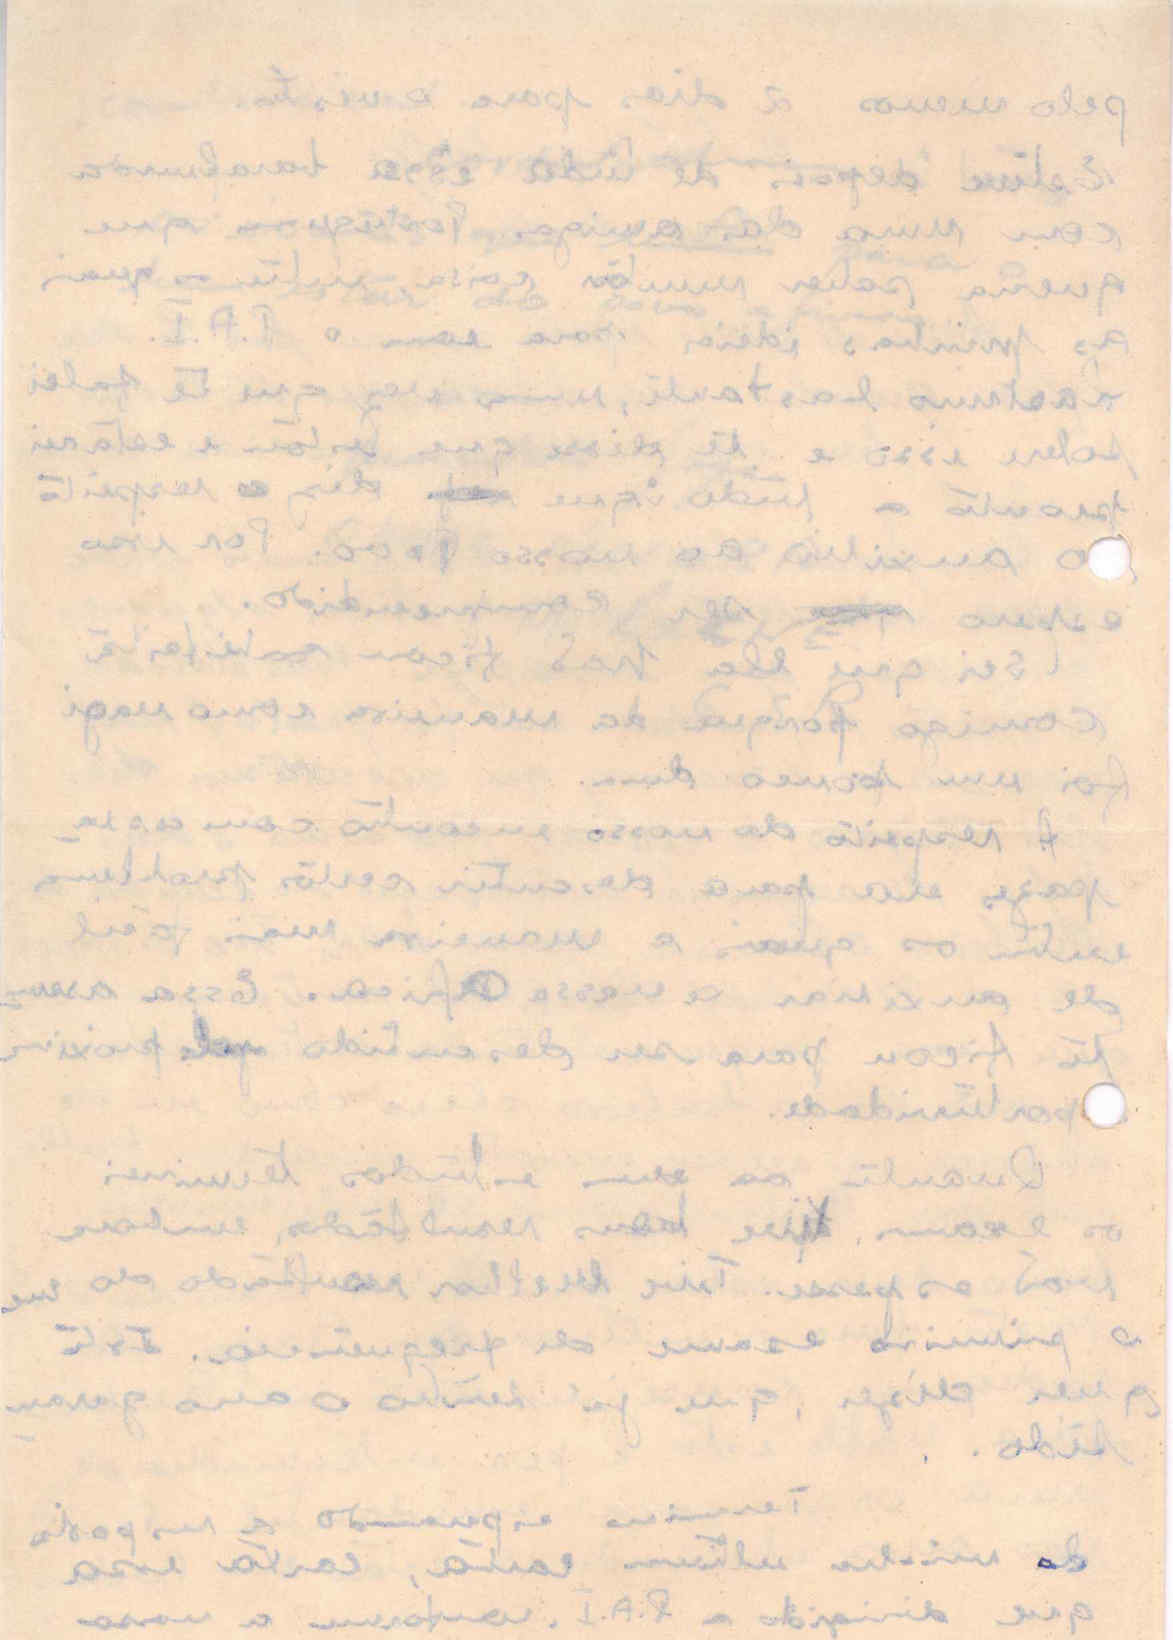 pelo menos 2 dias para a visita.
Estive depois de tuda essa barafunda
com uma das amigas Portuguesa que
queria saber muita coisa entre as quais
as minhas ideias para com o P.A.I.
bastante, uma vez que te falei
sobre isso e te disse que estou e estarei
pronto a tudo que diz o respeito
o auxilio ao nosso Povo. Por isso
espero ser compreendido.
Sei que ela não ficou satisfeita
comigo Porque da maneira como reagi
foi um pouco dura.
A respeito do nosso encontro com essa
era para descutir certos problemas
entre os quais a maneira mais facil
de auxiliar a nossa Africa. Essa
ficou para ser descutido proxima
oportunidade.
Quanto ao meus estudos terminei
os exames, tive bons resultados, embora
não os esperasse. Tive Melhor resultado do que
o primeiro exame de frequência. Isto
quer dizer, que já tenho o ano garan
tido.
Termino esperando a resposta
da minha ultima carta, carta essa
que dirigida a P.A.I. a nossa